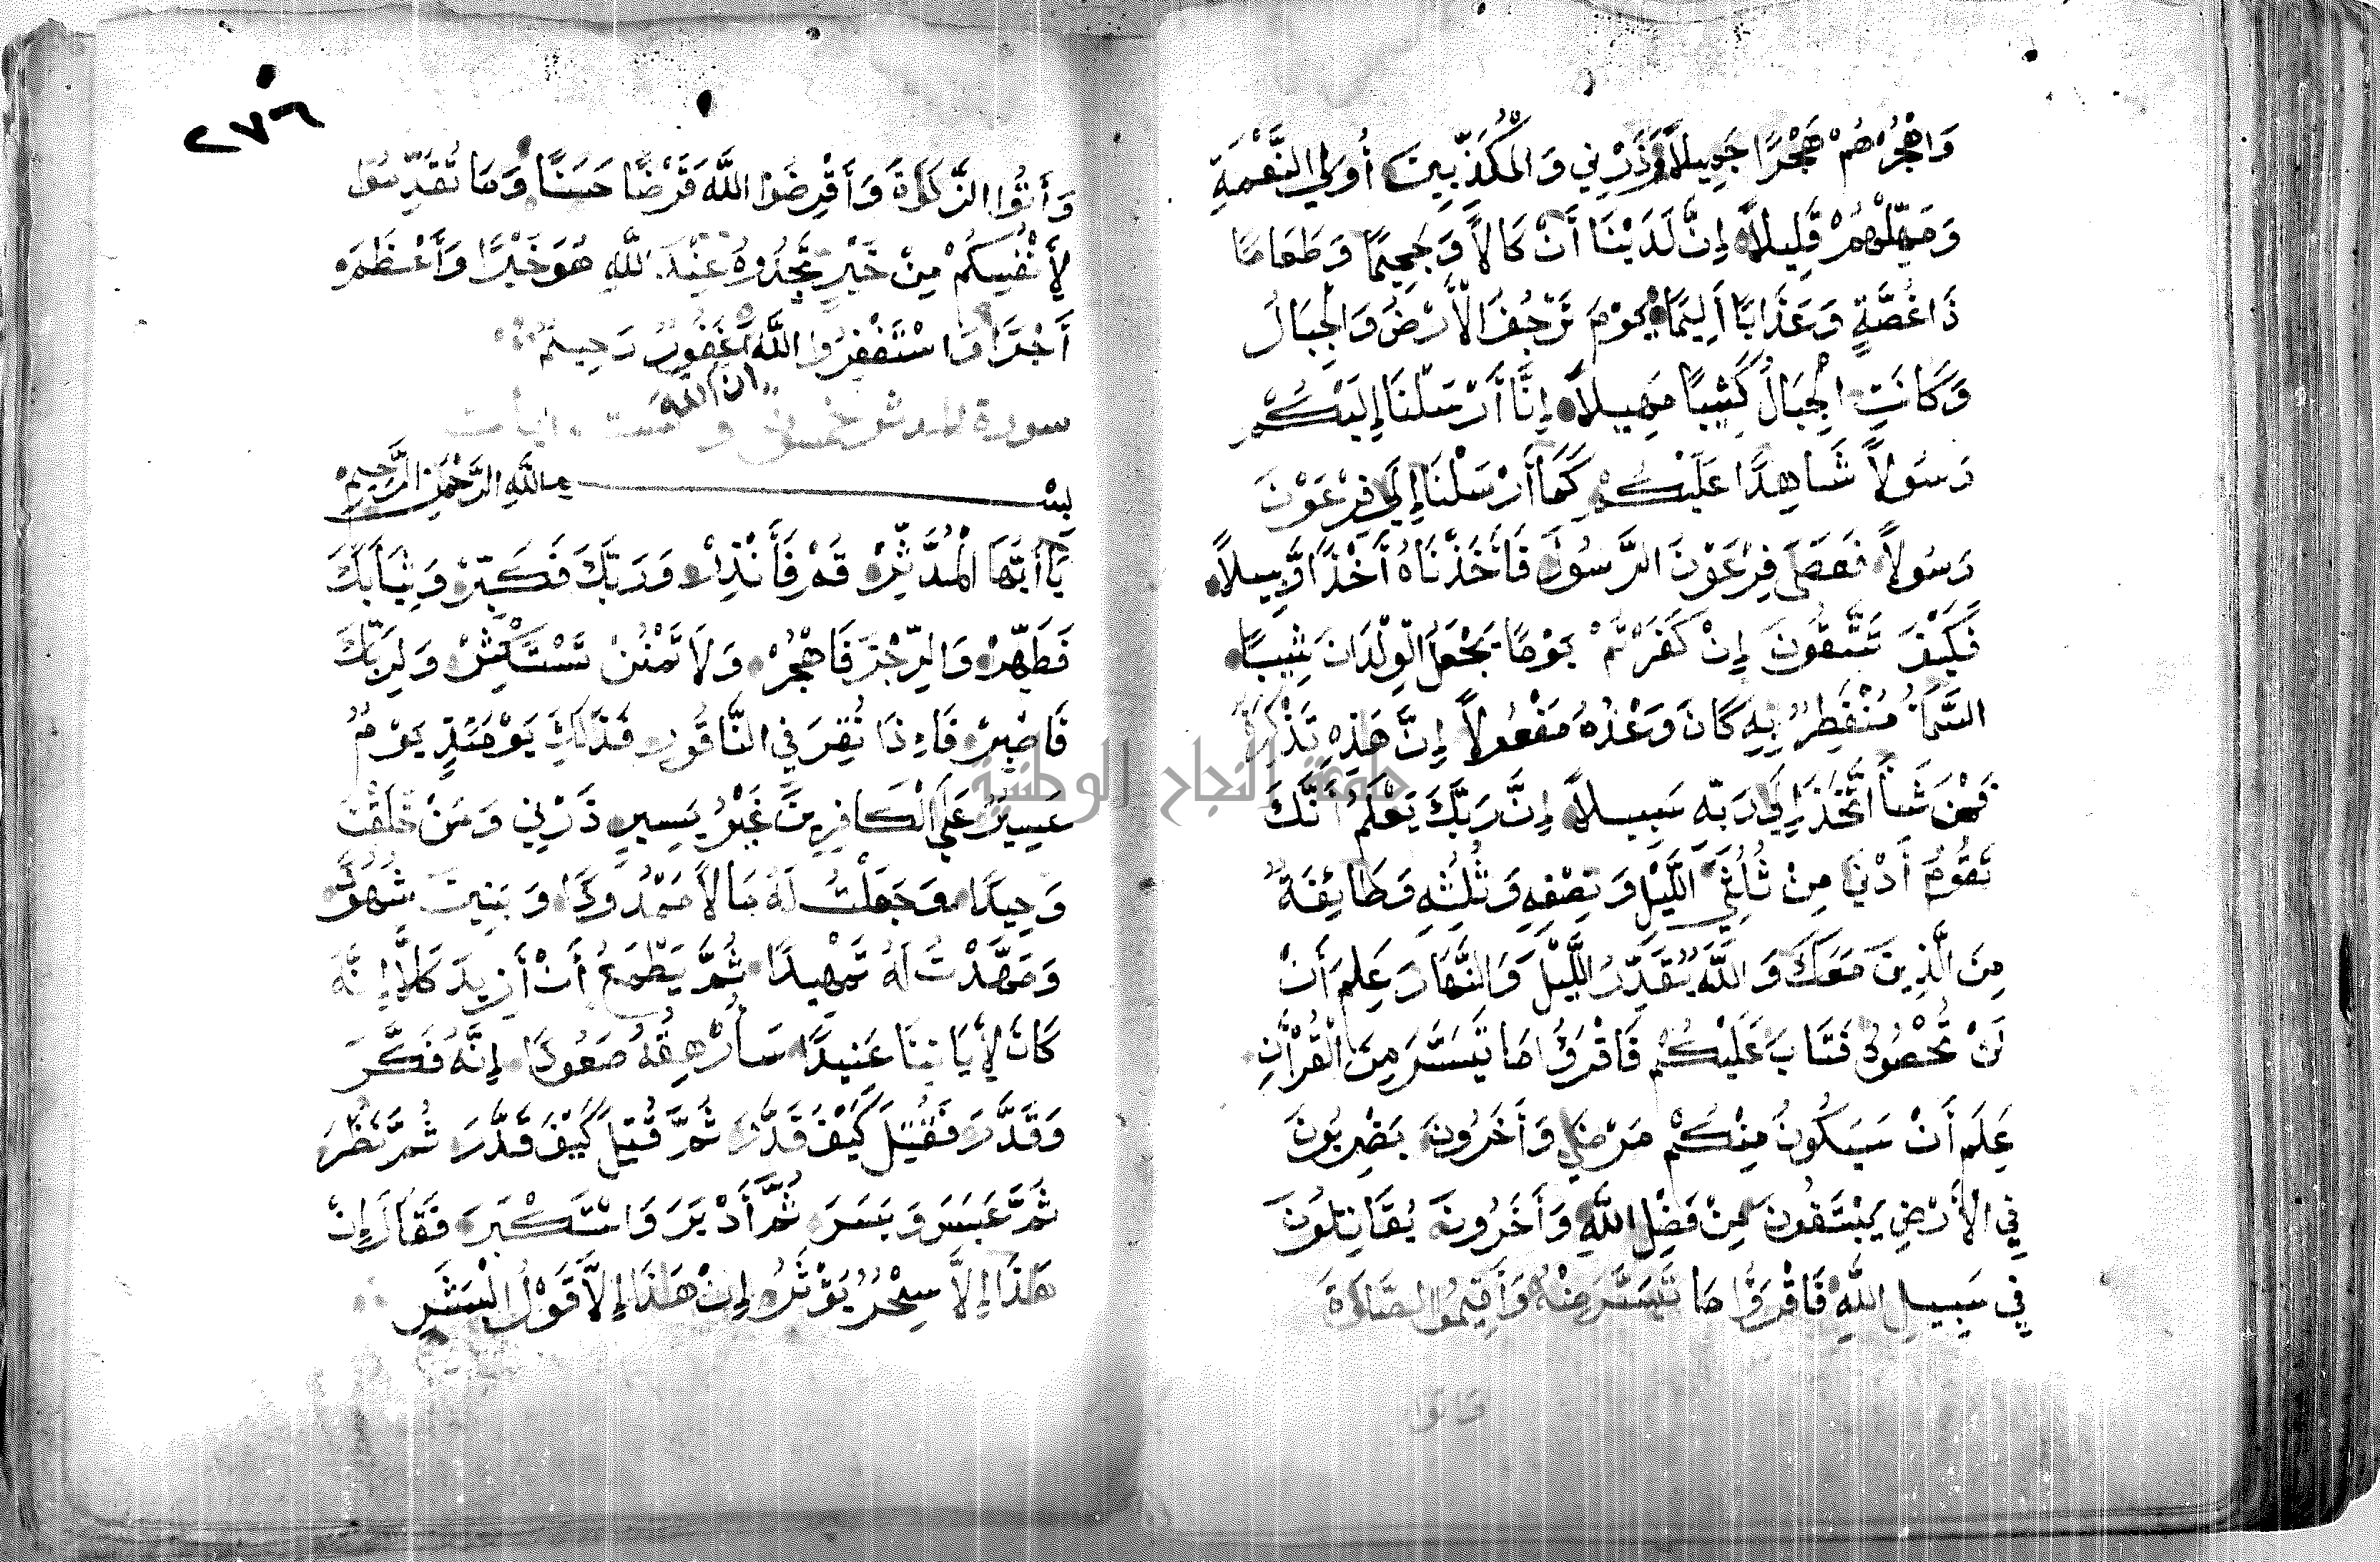 وَاهْجُرْهُمْ هَجْرًا جَمِيلاً وَذَرْنِي وَالْمُكَذِّبِينَ أُولِي النَّعْمَةِ
وَمَهِّلْهُمْ قَلِيلاً إِنَّ لَدَيْنَا أَنْكَالاً وَجَحِيمًا وَطَعَامًا
ذَا غُصَّةٍ وَعَذَابًا أَلِيمًا يَوْمَ تَرْجُفُ الْأَرْضُ وَالْجِبَالُ
وَكَانَتِ الْجِبَالُ كَثِيبًا مَهِيلاً إِنَّا أَرْسَلْنَا إِلَيْكُمْ
رَسُولاً شَاهِدًا عَلَيْكُمْ كَمَا أَرْسَلْنَا إِلَى فِرْعَوْنَ
رَسُولاً فَعَصَى فِرْعَوْنَ الرَّسُولَ فَأَخَذْنَاهُ أَخْذًا وَبِيلاً
فَكَيْفَ تَتَّقُونَ إِنْ كَفَرْتُمْ يَوْمًا يَجْعَلُ الْوِلْدَانَ شِيبًا
السَّمَاءُ مُنْفَطِرٌ بِهِ كَانَ وَعْدُهُ مَفْعُولاً إِنَّ هَذِهِ تَذْكِرَةٌ
فَمَنْ شَاءَ اتَّخَذَ إِلَى رَبِّهِ سَبِيلاً إِنَّ رَبَّكَ يَعْلَمُ أَنَّكَ
تَقُومُ أَدْنَى مِنْ ثُلُثَيِ اللَّيْلِ وَنِصْفِهِ وَثُلُثِهِ وَطَائِفَةٌ
مِنَ الَّذِينَ مَعَكَ وَاللَّهُ يُقَدِّرُ اللَّيْلَ وَالنَّهَارَ عَلِمَ أَنْ
لَنْ تُحْصُوهُ فَتَابَ عَلَيْكُمْ فَاقْرَؤُا مَا تَيَسَّرَ مِنَ الْقُرْآنِ
عَلِمَ أَنْ سَيَكُونُ مِنْكُمْ مَرْضَى وَأَخَرُونَ يَضْرِبُونَ
فِي الْأَرْضِ يَبْتَغُونَ مِنْ فَضْلِ اللَّهِ وَأَخَرُونَ يُقَاتِلُونَ
فِي سَبِيلِ اللَّهِ فَاقْرَؤُا مَا تَيَسَّرَ مِنْهُ وَأَقِيمُوا الصَّلَاةَ
وَأتوا
٢٧٦
وَأَتُوا الزَّكَاةَ وَأَقْرِضُوا اللَّهَ قَرْضًا حَسَنًا وَمَا تُقَدِّمُوا
لِأَنْفُسِكُمْ مِنْ خَيْرٍ تَجِدُوهُ عِنْدَ اللَّهِ هُوَ خَيْرًا وَأَعْظَمَ
أَجْرًا وَاسْتَغْفِرُوا اللَّهَ غَفُورٌ رَحِيمٌ
ان الله
سورة المدثر خمسون و ست ايات
بِسْمِ اللَّهِ الرَّحْمَنِ الرَّحِيمِ
يَا أَيُّهَا الْمُدَّثِّرْ قُمْ فَأَنْذِرْ وَرَبَّكَ فَكَبِّرْ وَثِيَابَكَ
فَطَهِّرْ وَالرِّجْزَ فَاهْجُرْ وَلَا تَمْنُنْ تَسْتَكْثِرْ وَلِرَبِّكَ
فَاصْبِرْ فَإِذَا نُقِرَ فِي النَّاقُورِ فَذَلِكَ يَوْمَئِذٍ يَوْمٌ
عَسِيرٌ عَلَى الْكَافِرِينَ غَيْرُ يَسِيرٍ ذَرْنِي وَمَنْ خَلَقْتُ
وَحِيدًا وَجَعَلْتُ لَهُ مَالاً مَمْدُودًا وَبَنِينَ شُهُودًا
وَمَهَّدْتُ لَهُ تَمْهِيدًا ثُمَّ يَطْمَعُ أَنْ أَزِيدَ كَلَّا إِنَّهُ
كَانَ لِأَيَاتِنَا عَنِيدًا سَأُرْهِقُهُ صَعُودًا إِنَّهُ فَكَّرَ
وَقَدَّرَ فَقُتِلَ كَيْفَ قَدَّرَ ثُمَّ قُتِلَ كَيْفَ قَدَّرَ ثُمَّ نَظَرَ
ثُمَّ عَبَسَ وَبَسَرَ ثُمَّ أَدْبَرَ وَاسْتَكْبَرَ فَقَالَ إِنْ
هَذَا إِلَّا سِحْرٌ يُؤْثَرُ إِنْ هَذَا إِلَّا قَوْلُ الْبَشَرِ
جامعة النجاح الوطنية